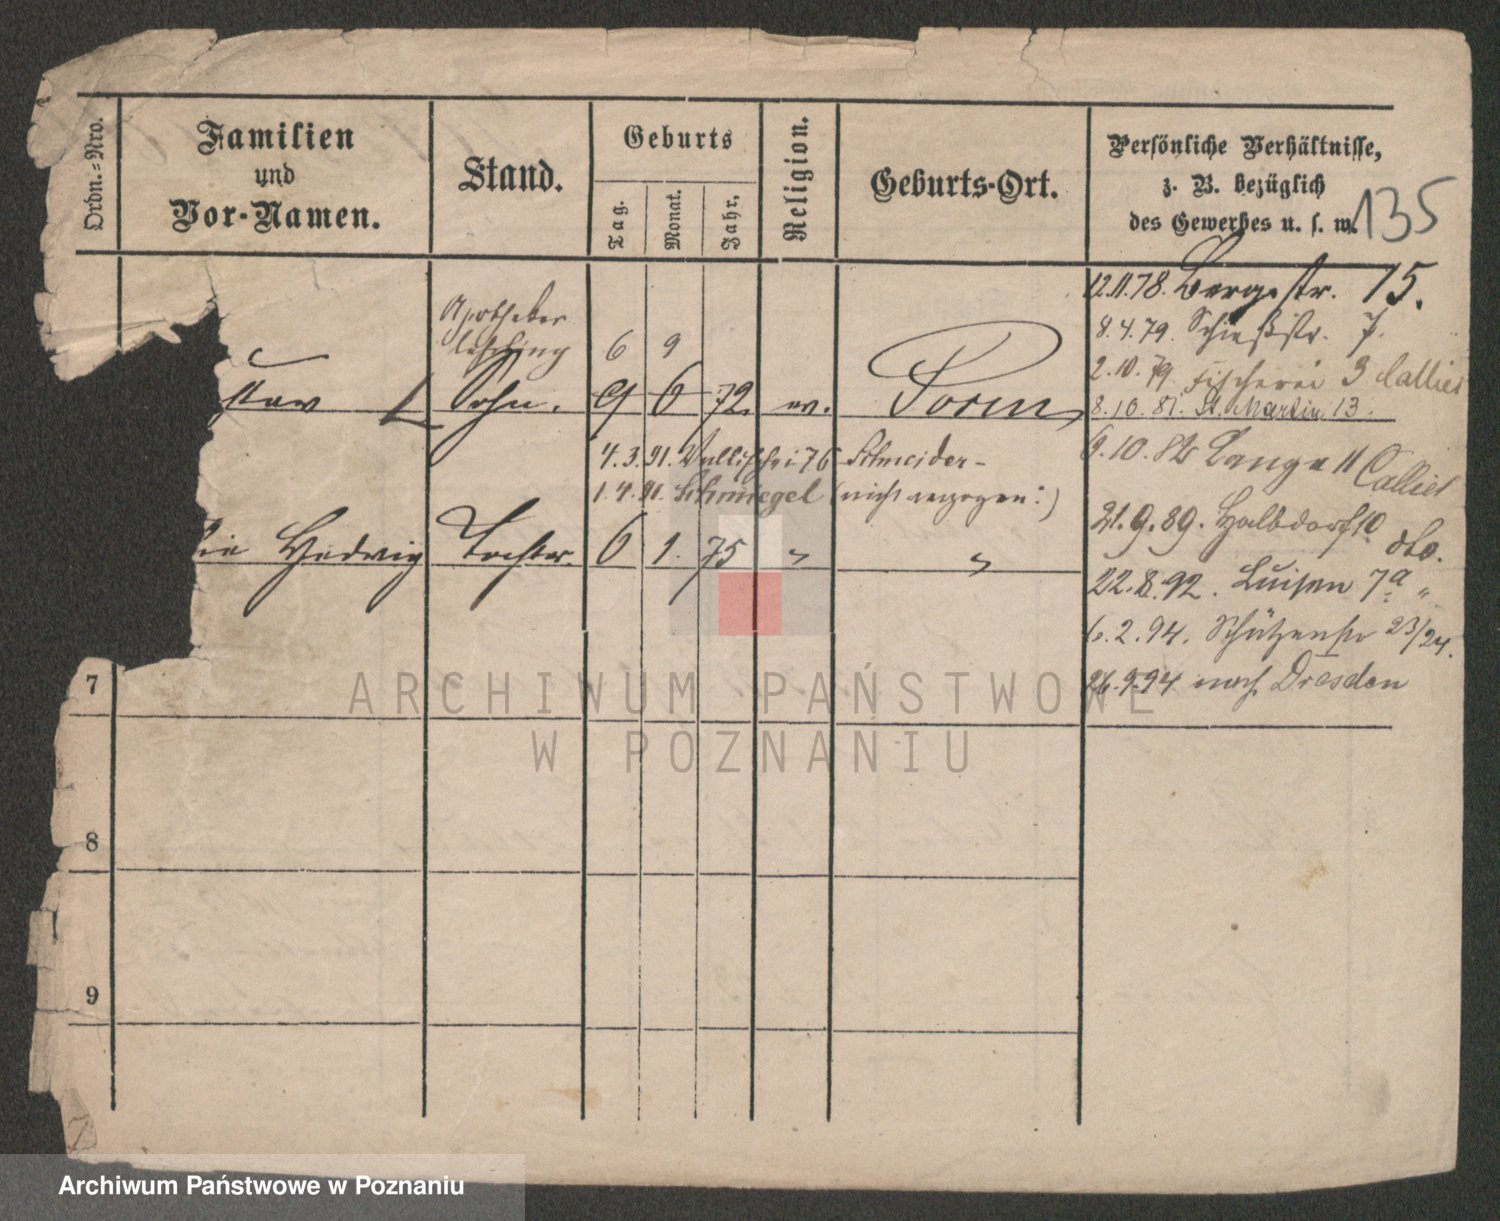 Ordn.=Nro.
Familien
und
Vor-Namen.
Stand.
Geburts
Tag.
Monat.
Jahr.
Religion.
Geburts-Ort.
Persönliche Verhältnisse,
z. B. bezüglich
des Gewerbes u. s. w.
135
12.11.78. Bergstr. 15.
Apotheker
8.4.79. Schießstr. 7.
6 9
2.10.79 Fischerei 3 Callier
Sohn. 9 6 72. ev. Posen
8.10.81. St. Martin 13.
4.3.91. Wallischei 76 Schneider-
6.10.82 Lange 11 Callier
1.4.91. Schmiegel (nicht verzogen:)
21.9.89. Halbdorf 10 dto.
Hedwig Tochter. 6 1. 75 " "
22.8.92. Luisen 7a "
6.2.94. Schützenstr 23/24.
26.9.94 nach Dresden
7
8
9
ARCHIWUM PAŃSTWOWE
W POZNANIU
Archiwum Państwowe w Poznaniu